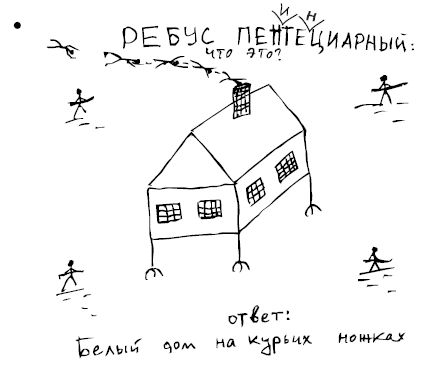 РЕБУС ПЕНТЕЦИАРНЫЙ:
И Н
ЧТО ЭТО?
ответ:
Белый дом на курьих ножках